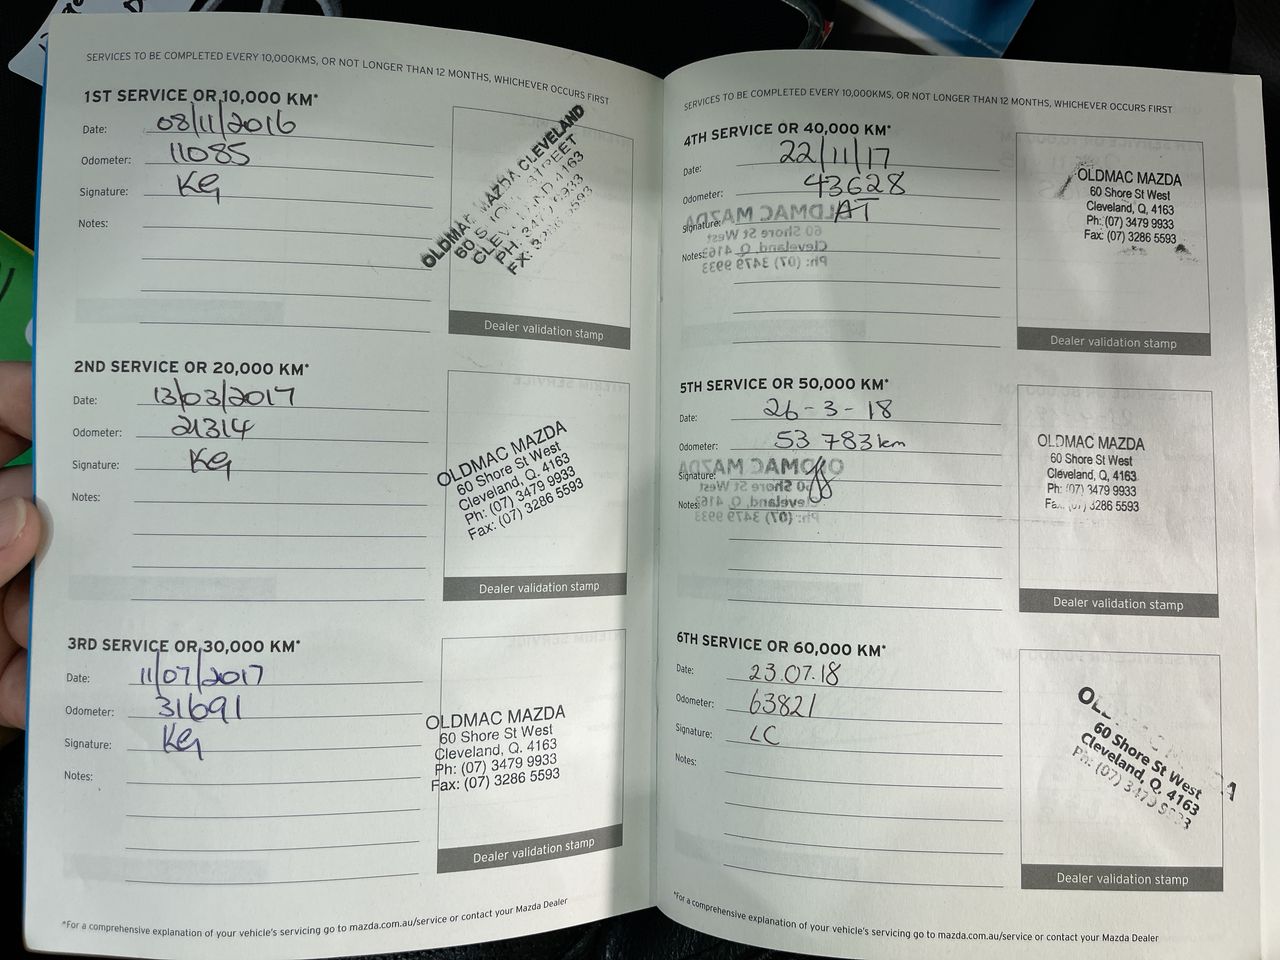 SERVICES TO BE COMPLETED EVERY 10,000KMS, OR NOT LONGER THAN 12 MONTHS, WHICHEVER OCCURS FIRST
1ST SERVICE OR 10,000 KM*
Date: 08/11/2016
Odometer: 11085
Signature: KG
Notes:
OLDMAC MAZDA CLEVELAND
60 STREET
4163
PH: 3479 9933
Dealer validation stamp
2ND SERVICE OR 20,000 KM*
Date: 13/03/2017
Odometer: 21314
Signature: KG
Notes:
OLDMAC MAZDA
60 Shore St West
Cleveland, Q. 4163
Ph: (07) 3479 9933
Fax: (07) 3286 5593
Dealer validation stamp
3RD SERVICE OR 30,000 KM*
Date: 11/07/2017
Odometer: 31691
Signature: KG
Notes:
OLDMAC MAZDA
60 Shore St West
Cleveland, Q. 4163
Ph: (07) 3479 9933
Fax: (07) 3286 5593
Dealer validation stamp
*For a comprehensive explanation of your vehicle's servicing go to mazda.com.au/service or contact your Mazda Dealer
SERVICES TO BE COMPLETED EVERY 10,000KMS, OR NOT LONGER THAN 12 MONTHS, WHICHEVER OCCURS FIRST
4TH SERVICE OR 40,000 KM*
Date: 22/11/17
Odometer: 43628
Signature: AT
Notes:
OLDMAC MAZDA
60 Shore St West
Cleveland, Q, 4163
Ph: (07) 3479 9933
OLDMAC MAZDA
60 Shore St West
Cleveland, Q, 4163
Ph: (07) 3479 9933
Fax: (07) 3286 5593
Dealer validation stamp
5TH SERVICE OR 50,000 KM*
Date: 26-3-18
Odometer: 53 783 km
Signature:
Notes:
OLDMAC MAZDA
60 Shore St West
Cleveland, Q, 4163
Ph: (07) 3479 9933
OLDMAC MAZDA
60 Shore St West
Cleveland, Q, 4163
Ph: (07) 3479 9933
Fax: (07) 3286 5593
Dealer validation stamp
6TH SERVICE OR 60,000 KM*
Date: 23.07.18
Odometer: 63821
Signature: LC
Notes:
60 Shore St West
Cleveland, Q, 4163
Ph: (07) 3479 9933
Dealer validation stamp
*For a comprehensive explanation of your vehicle's servicing go to mazda.com.au/service or contact your Mazda Dealer